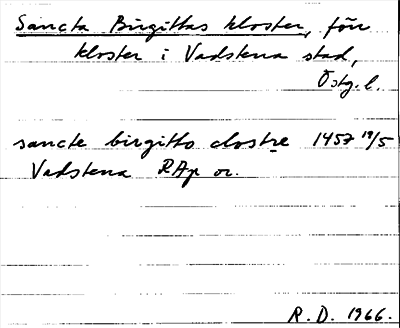 Sancta Birgittas kloster, förr
kloster i Vadstena stad,
Östg. l.
sancte birgitto clostre 1457 19/5
Vadstena RAp or.
R. D. 1966.